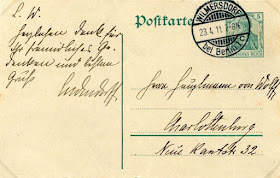 L. W.
Herzlichen Dank für
Ihr freundliches Ge-
denken und besten
Gruß
Postkarte
WILMERSDORF
23.4.11.
bei Berlin
5
Herrn Hauptmann von
Charlottenburg
Neue Kantstr 32